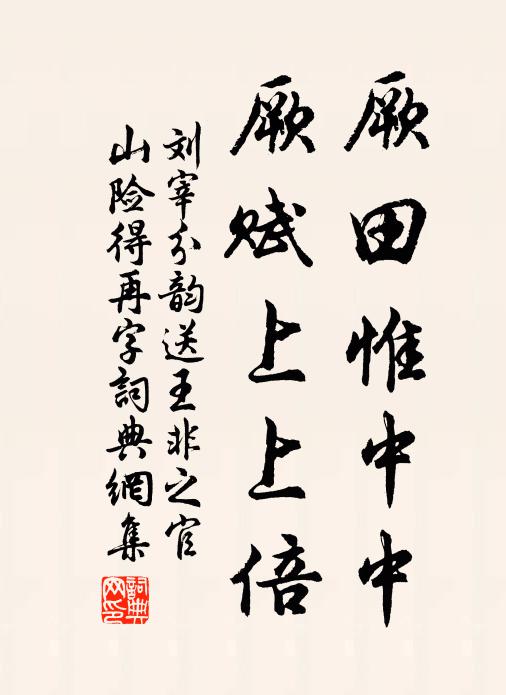 厥田惟中中
厥赋上上倍
刘宰分韵送王非之官
山险得再字詞典網集
詞典
网印